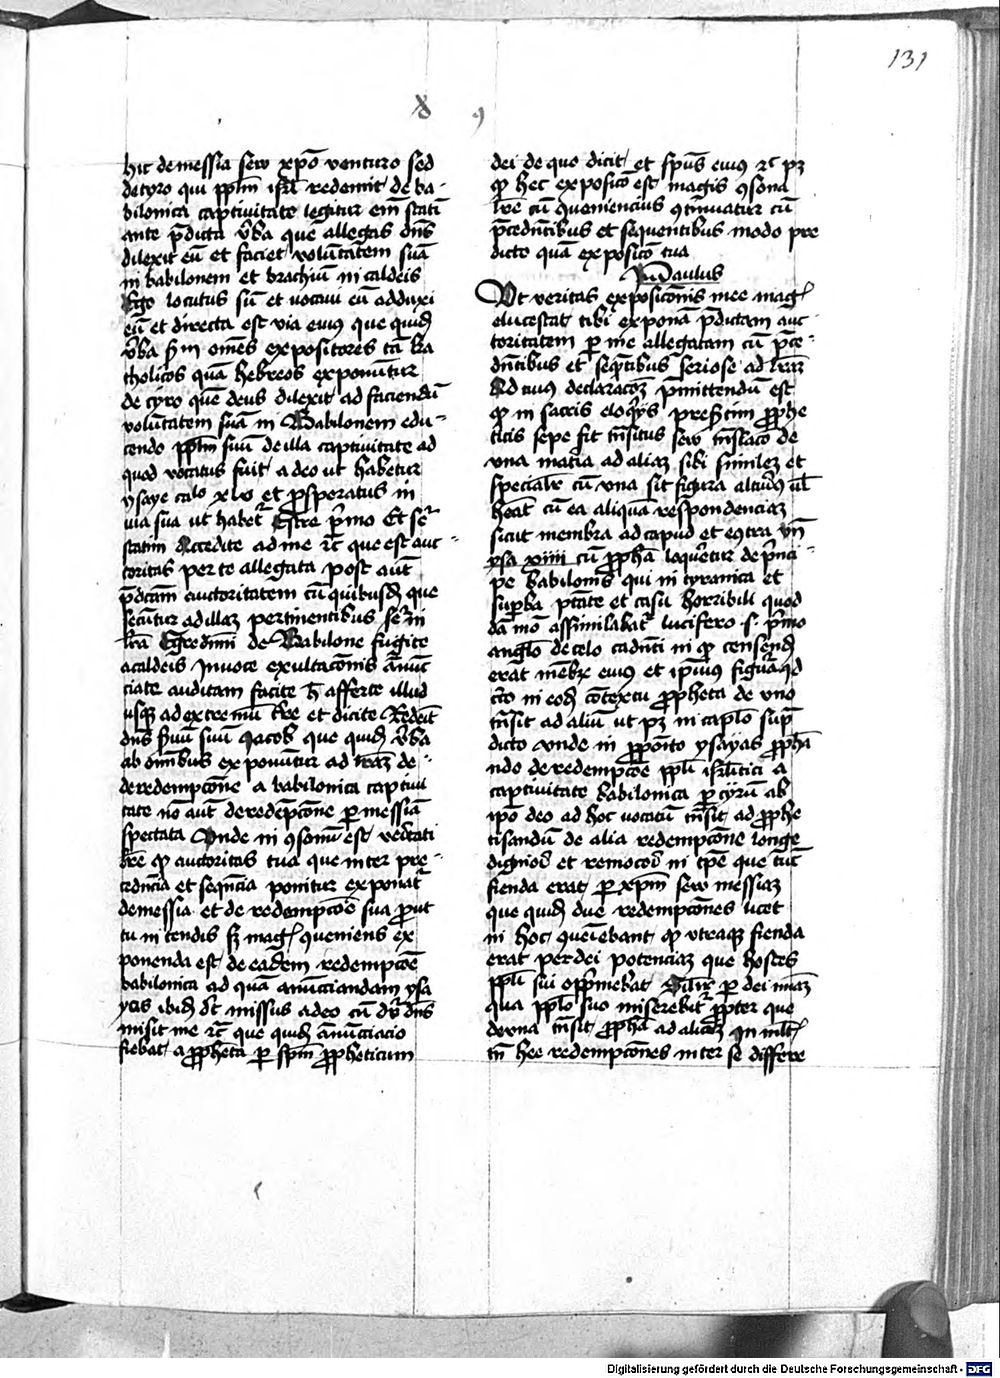 131
hic de messia seu xpō venturo sed
de tyro qui pplm isrl redemit de ba-
bilonica captiuitate legitur em̄ statī
ante p̄dicta v̄ba que allegas dn̄s
dilexit eū et faciet volūtatem suā
in babilonem et brachiū in caldeis
Ego locutus sū et vocaui eū adduxi
eū et directa est via eius que quid̄
v̄ba s̄m om̄es expositores tā ka
tholicos quā hebreos exponūtur
de cyro quē deus dilexit ad faciendū
volūtatem suā in Babilonem edu-
cendo pplm suū de illa captiuitate ad
quod vocatus fuit a deo ut habetur
ysaye calo xlv et p̄speratus in
via sua ut habet̄ Esdre p̄mo Et se
statim Accedite ad me ⁊c̄ que est auc-
toritas per te allegata post aūt
p̄dcām auctoritatem cū quibusd̄ que
secūtur ad illaz pertinentibus se in
lr̄a Egredimi de Babilone fugite
a caldeis In voce exultacōnis ānūc
ciate auditam facite h̄ afferte illud
usqz ad extremū tr̄re et dicite Redeīt
dn̄s s̄uū suū Iacob que quid̄ v̄ba
ab om̄ibus exponūtur ad lr̄az de-
de redempcōne a babilonica captiui
tate nō aūt de redēpcōne p messiā
spectata Unde in gsonū est veritati
lr̄e qp auctoritas tua que inter pre-
cedn̄cia et seqn̄cia ponitur exponat̄
de messia et de redempcōe sua prout
tu intendis sz mag queniens ex
ponenda est de eādem redempcōe
babilonica ad quā anūcciandam ysa
yas ibid̄ dr̄t missus a deo cū dr̄ dn̄s
misit me ⁊c̄ que quid̄ ānūcciacio
fiebat a ppheta p sp̄m ppheticum
dei de quo dicit et sp̄us eius ⁊c̄ pz
qp hec exposicō est magis gsona
lr̄e cū queniencius gtinuatur cū
p̄cedn̄tibus et sequentibus modo pre
dicto quā exposicō tua
Paulus
Ut veritas exposicōnis mee mag
elucescat tibi exponā p̄dictam auc-
toritatem p me allegatam cū p̄ce-
dn̄tibus et seq̄ntibus seriose ad lr̄az
Ad cuius declaracōz p̄mittendū est
qp in sacris eloq̄ys presertim pphe
ticis sepe fit tn̄situs seu tn̄slacō de
vna materia ad aliaz sibi similez et
specialr̄ cū vna sit figura alteri9 ul̄
heāt cū ea aliquā respondenciaz
sicut membra ad capud et eg̱tra vn̄
ysa xiiii cū pphā loquer̄tur de p̄nci-
pe babilonis qui in tyranica et
sup̄ba ptate et casu horribili quod
dā mō assimilabat̄ lucifero .s. p̄mo
anglō de celo cadn̄ti in qp censend̄
erāt mēbr̄ eius et ip̄ius figurā qd
in eod̄ cōtextu ppheta de vno
tn̄sit ad aliū ut pz in caplō sup̄
dicto vnde in ppōito ysayas pphā
ndo de redempcōe ppli isrl̄itici a
captiuitate babilonica p cyrū ab
ip̄o deo ad hoc vocatū tn̄sit ad pphe
tisandū de alia redempcōne longe
dignior̄ et remocior̄ in tpē que tūc
fienda erat p xpm̄ seu messiaz
que quid̄ due redempcōnes licet
in hoc queniebant qp vtraqz fienda
erat per dei potenciaz que hostes
ppli sui opp̄mebat Silr̄ p dei mīaz
qua pplō suo miserebit̄ ppter que
de vna tn̄sit pphā ad aliaz In mlt
tn̄ hee redempcōnes inter se differe
Digitalisierung gefördert durch die Deutsche Forschungsgemeinschaft - DFG